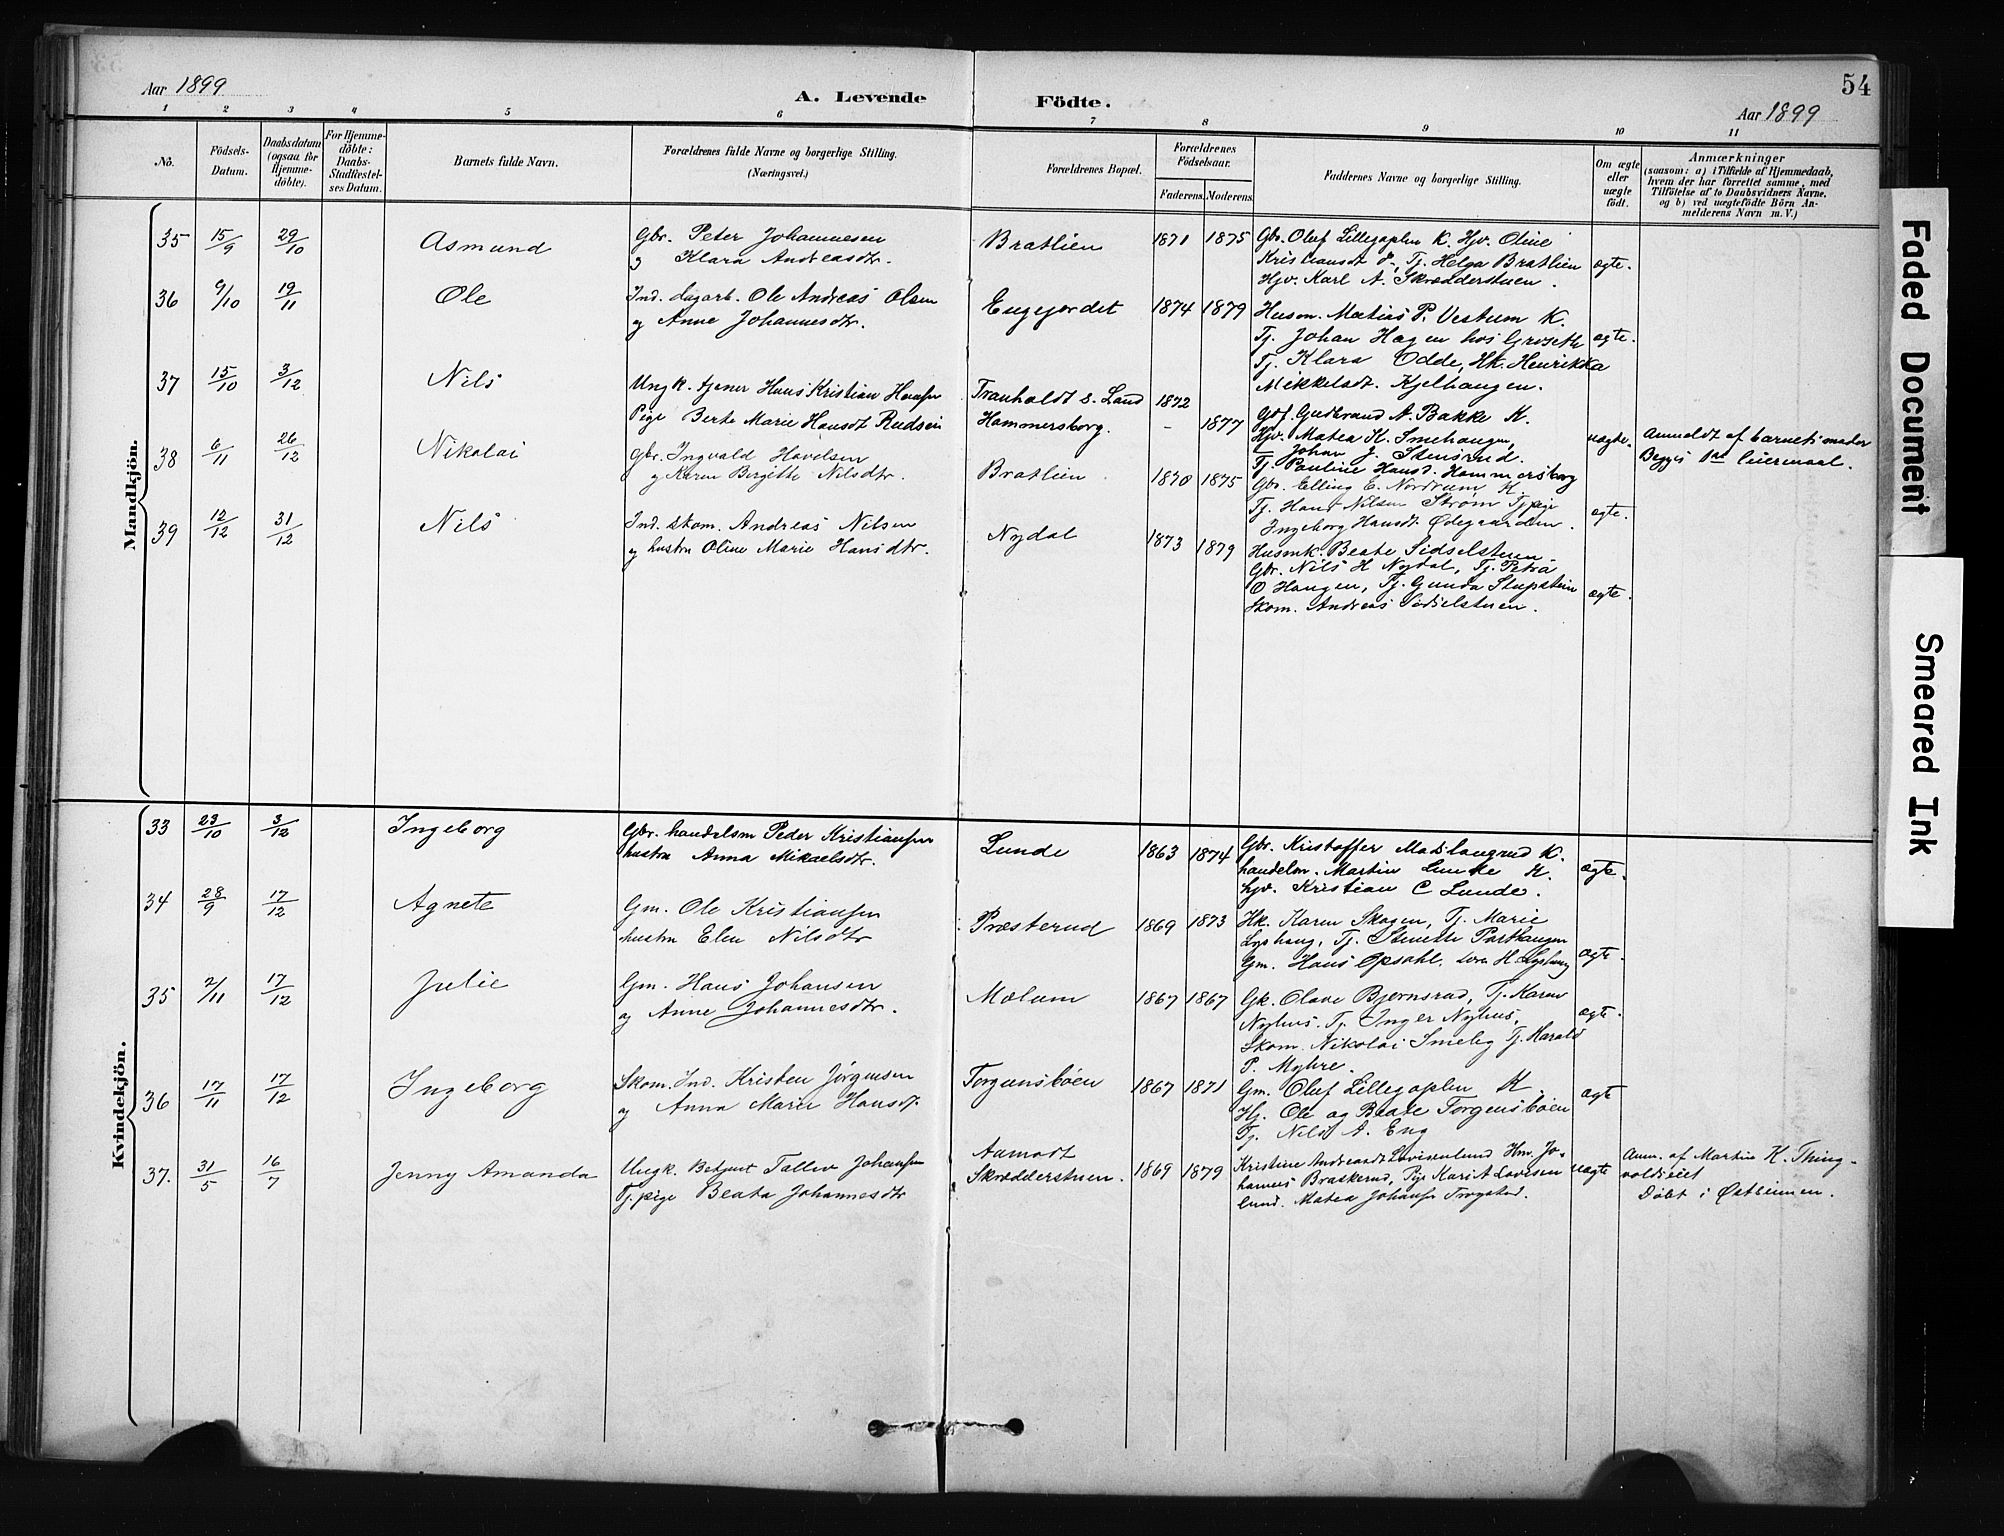 54
Aar 1899
A. Levende Födte.
Aar 1899
1 2 3 4 5 6 7 8 9 10 11
No.
Födsels-Datum.
Daabsdatum (ogsaa for Hjemme-döbte).
For Hjemme-döbte: Daabs-Stadfæstel-ses Datum.
Barnets fulde Navn.
Forældrenes fulde Navne og borgerlige Stilling. (Næringsvei.)
Forældrenes Bopæl.
Forældrenes Födselsaar.
Faderens. Moderens.
Faddernes Navne og borgerlige Stilling.
Om ægte eller uægte födt.
Anmærkninger
(saasom: a) i Tilfælde af Hjemmedaab, hvem der har forrettet samme, med Tilföielse af to Daabsvidners Navne, og b) ved uægtefödte Börn An-melderens Navn m. V.)
Mandkjön.
35 15/9 29/10 Asmund Gbr. Peter Johannesen
g Klara Andreasdtr. Bratlien 1871 1875 Gbr. Oluf Lillegaplen K. Hjv. Oline
Kristiansdt Tj. Helga Bratlien
Hjv. Karl A. Skrædderstuen. ægte.
36 9/10 19/11 Ole Ind. dagarb. Ole Andreas Olsen
og Anne Johannesdtr. Engejordet 1874 1879 Husm. Matias P. Vestum K.
Tj. Johan Hagen hos Groseth
Tj. Klara Odde, Hk. Henrikka
Mikkelsdt. Kjelhaugen. ægte.
37 15/10 3/12 Nils Ungk. tjener Hans Kristian Hansen
Pige Berte Marie Hansdt Rudsen Tranholdt s. Land
Hammersborg. 1872 - 1877 Gbf. Gudbrand A. Bakke K.
Hjv. Matea H. Smehaugen,
Johan J. Stensrud.
Tj. Pauline Hansd. Hammersborg uægte. Anmeldt af barnets moder
Begges 1ste leiermaal.
38 6/11 26/12 Nikolai Gbr. Ingvald Hovelsen
og Karen Birgitte Nilsdtr. Bratlien 1870 1875 Gbr. Elling E. Nordrum K.
Tj. Hans Nilsen Strøm Tj pige
Ingeborg Hansdt Ødegaarden. ægte.
39 12/12 31/12 Nils Ind. skom. Andreas Nilsen
og hustru Oline Marie Hansdtr. Nydal 1873 1879 Husmk. Beate Sidselstuen
Gbr. Nils H Nydal, Tj. Petra
O Haugen, Tj. Gunda Stupstein
Skom. Andreas Sidselstuen. ægte.
Kvindekjön.
33 23/10 3/12 Ingeborg Gbr. handelsm Peder Kristiansen
hustru Anna Mikaelsdtr. Lunde 1863 1874 Gbr. Kristoffer K.
handelsm. Martin Lunde K.
hjv. Kristian C Lunde. ægte.
34 28/9 17/12 Agnete Gm. Ole Kristiansen
hustru Elen Nilsdtr Præsterud 1869 1873 Hk. Karen Skogen, Tj. Marie
Lyshaug, Tj. Haugen
Gm. Hans Opsahl. ægte.
35 2/11 17/12 Julie Gm. Hans Johansen
og Anne Johannesdtr. Mælum 1867 1867 Gk. Olave Bjørnsrud, Tj. Karen
Nyhus. Tj. Inger Nyhus,
Skom. Nikolai Smeby Tj. Harald
P. Myhre. ægte.
36 17/11 17/12 Ingeborg Skom. Ind. Kristen Jørgensen
og Anna Marie Hansdt. Torgunsbøen 1867 1871 Gm. Oluf Lillegaplen K.
Hj. Ole og Beate Torgunsbøen
Tj. Nils A. Eng ægte
37. 31/5 16/7 Jenny Amanda Ungk. Tallev Johansen
Tj. pige Beata Johannesdtr Aamodt
Skrædderstuen. 1869 1879 Kristine Andreasdt Lovisenlund Hm. Jo-
hannes Braskerud, Pige Kari A Lovisen
lund. Matea Johansen Trøgstad. uægte Anm. af Martin K. Thing-
voldseiet
Døbt i Østsinnen.
Faded Document
Smeared Ink